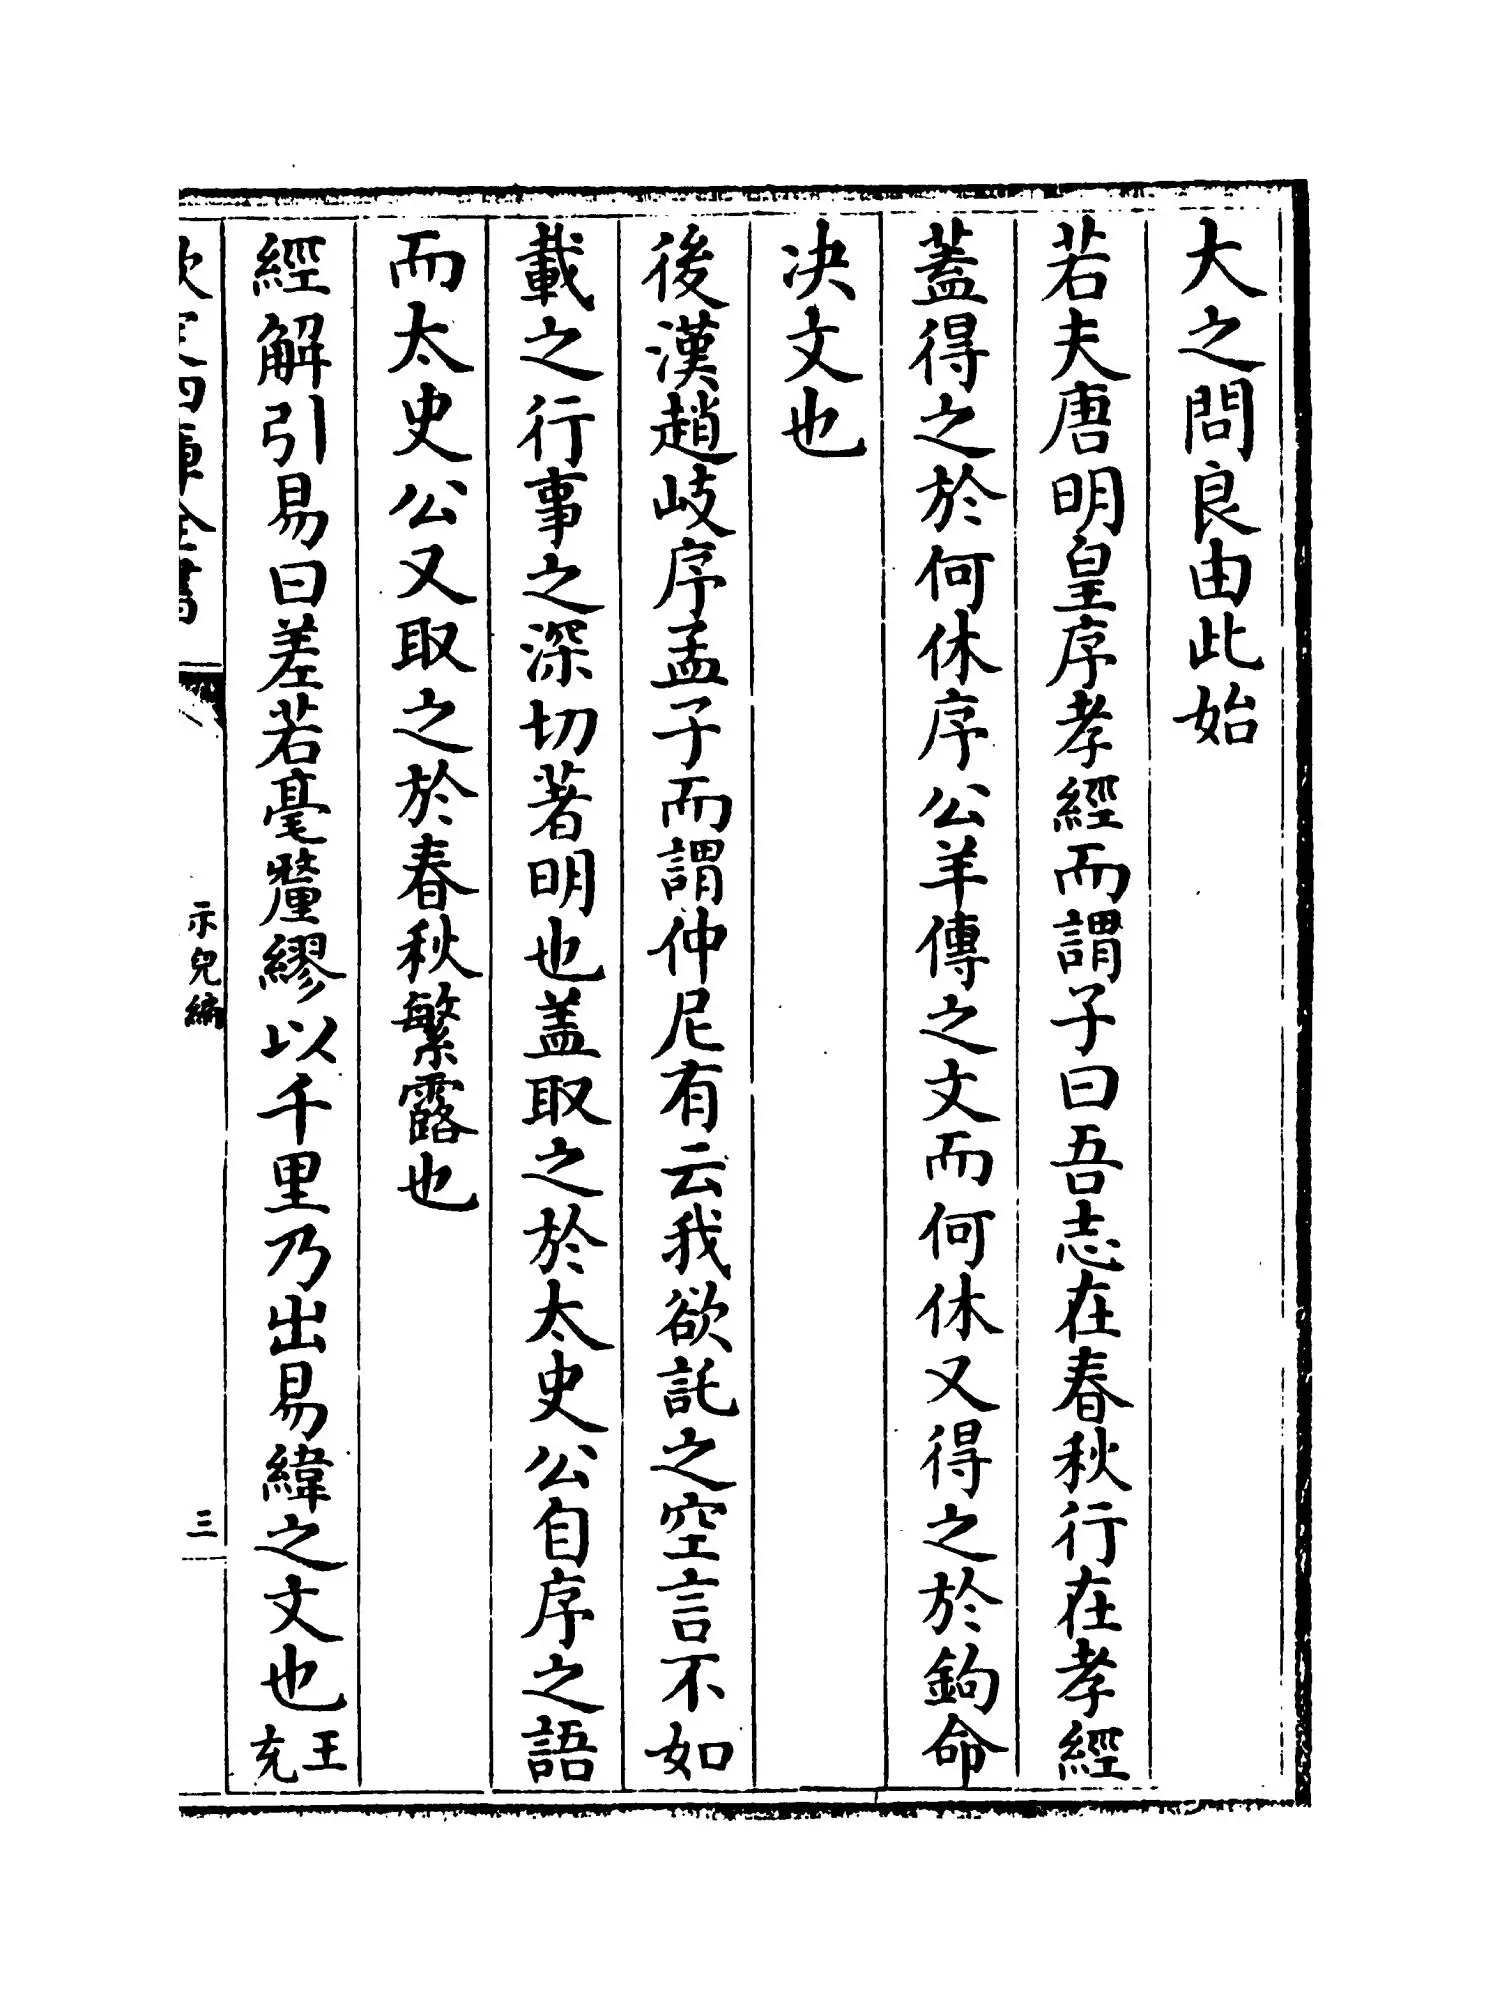 大之問良由此始
若夫唐明皇序孝經而謂子曰吾志在春秋行在孝經
蓋得之於何休序公羊傳之文而何休又得之於鉤命
决文也
後漢趙岐序孟子而謂仲尼有云我欲託之空言不如
載之行事之深切著明也盖取之於太史公自序之語
而太史公又取之於春秋繁露也
經解引易曰差若毫釐繆以千里乃出易緯之文也王
充
欽定四庫全書
示兒編
三